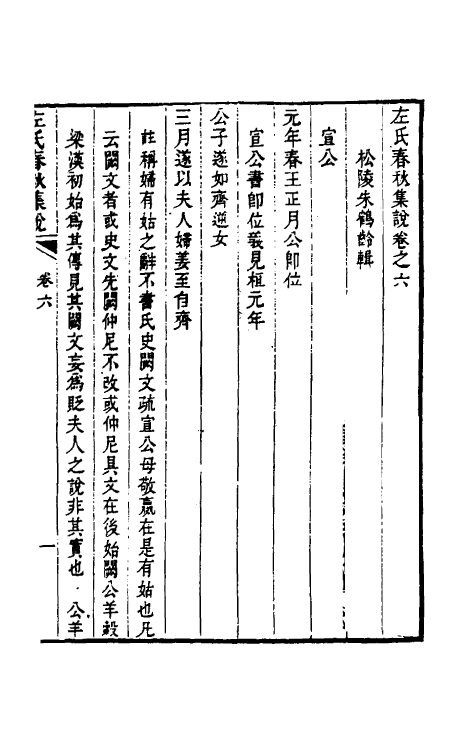 左氏春秋集說卷之六
松陵朱鶴齡輯
宣公
元年春王正月公卽位
宣公書卽位義見桓元年
公子遂如齊逆女
三月遂以夫人婦姜至自齊
註稱婦有姑之辭不書氏史闕文疏宣公母敬嬴在是有姑也凡
云闕文者或史文先闕仲尼不改或仲尼具文在後始闕公羊穀
梁漢初始爲其傳見其闕文妄爲貶夫人之說非其實也・公羊
左氏春秋集說
卷六
一